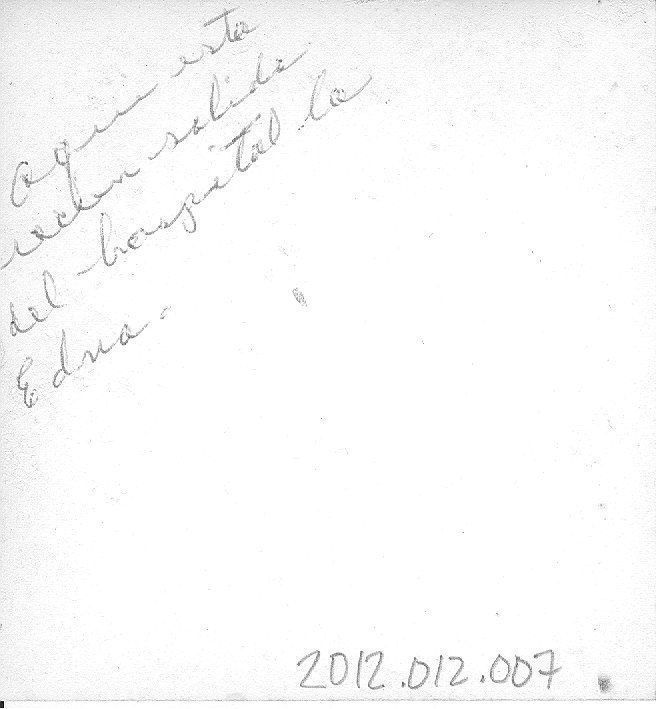 aqui esta
recien salida
del hospital la
Edna.
2012.012.007